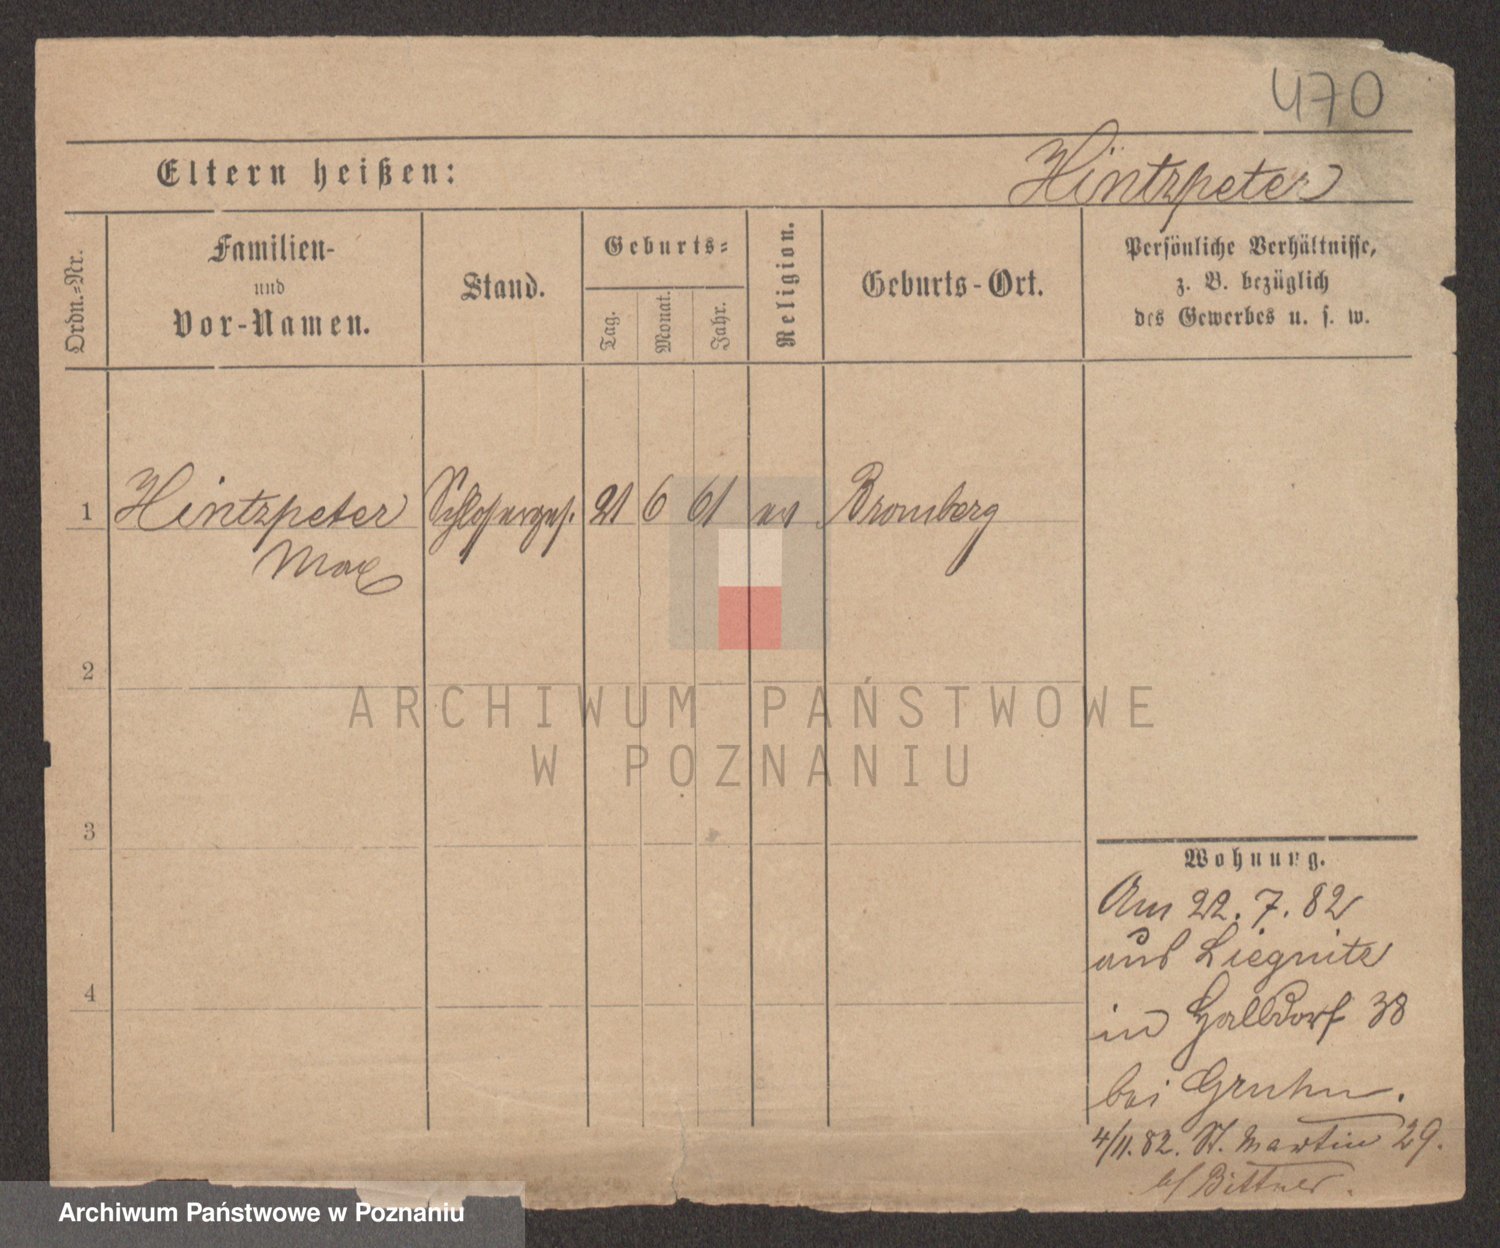 470
Eltern heißen:
Hintzpeter
Ordn.=Nr.
Familien-
und
Vor-Namen.
Stand.
Geburts=
Tag.
Monat.
Jahr.
Religion.
Geburts-Ort.
Persönliche Verhältnisse,
z. B. bezüglich
des Gewerbes u. s. w.
1 Hintzpeter Schlosserges. 21 6 61 ev Bromberg
Max
2
ARCHIWUM PAŃSTWOWE
W POZNANIU
3
Wohnung.
Am 22.7.82
aus Liegnitz
4
in Halldorf 38
bei Gruhn.
4/11.82. St. Martin 29.
b/ Bittner.
Archiwum Państwowe w Poznaniu